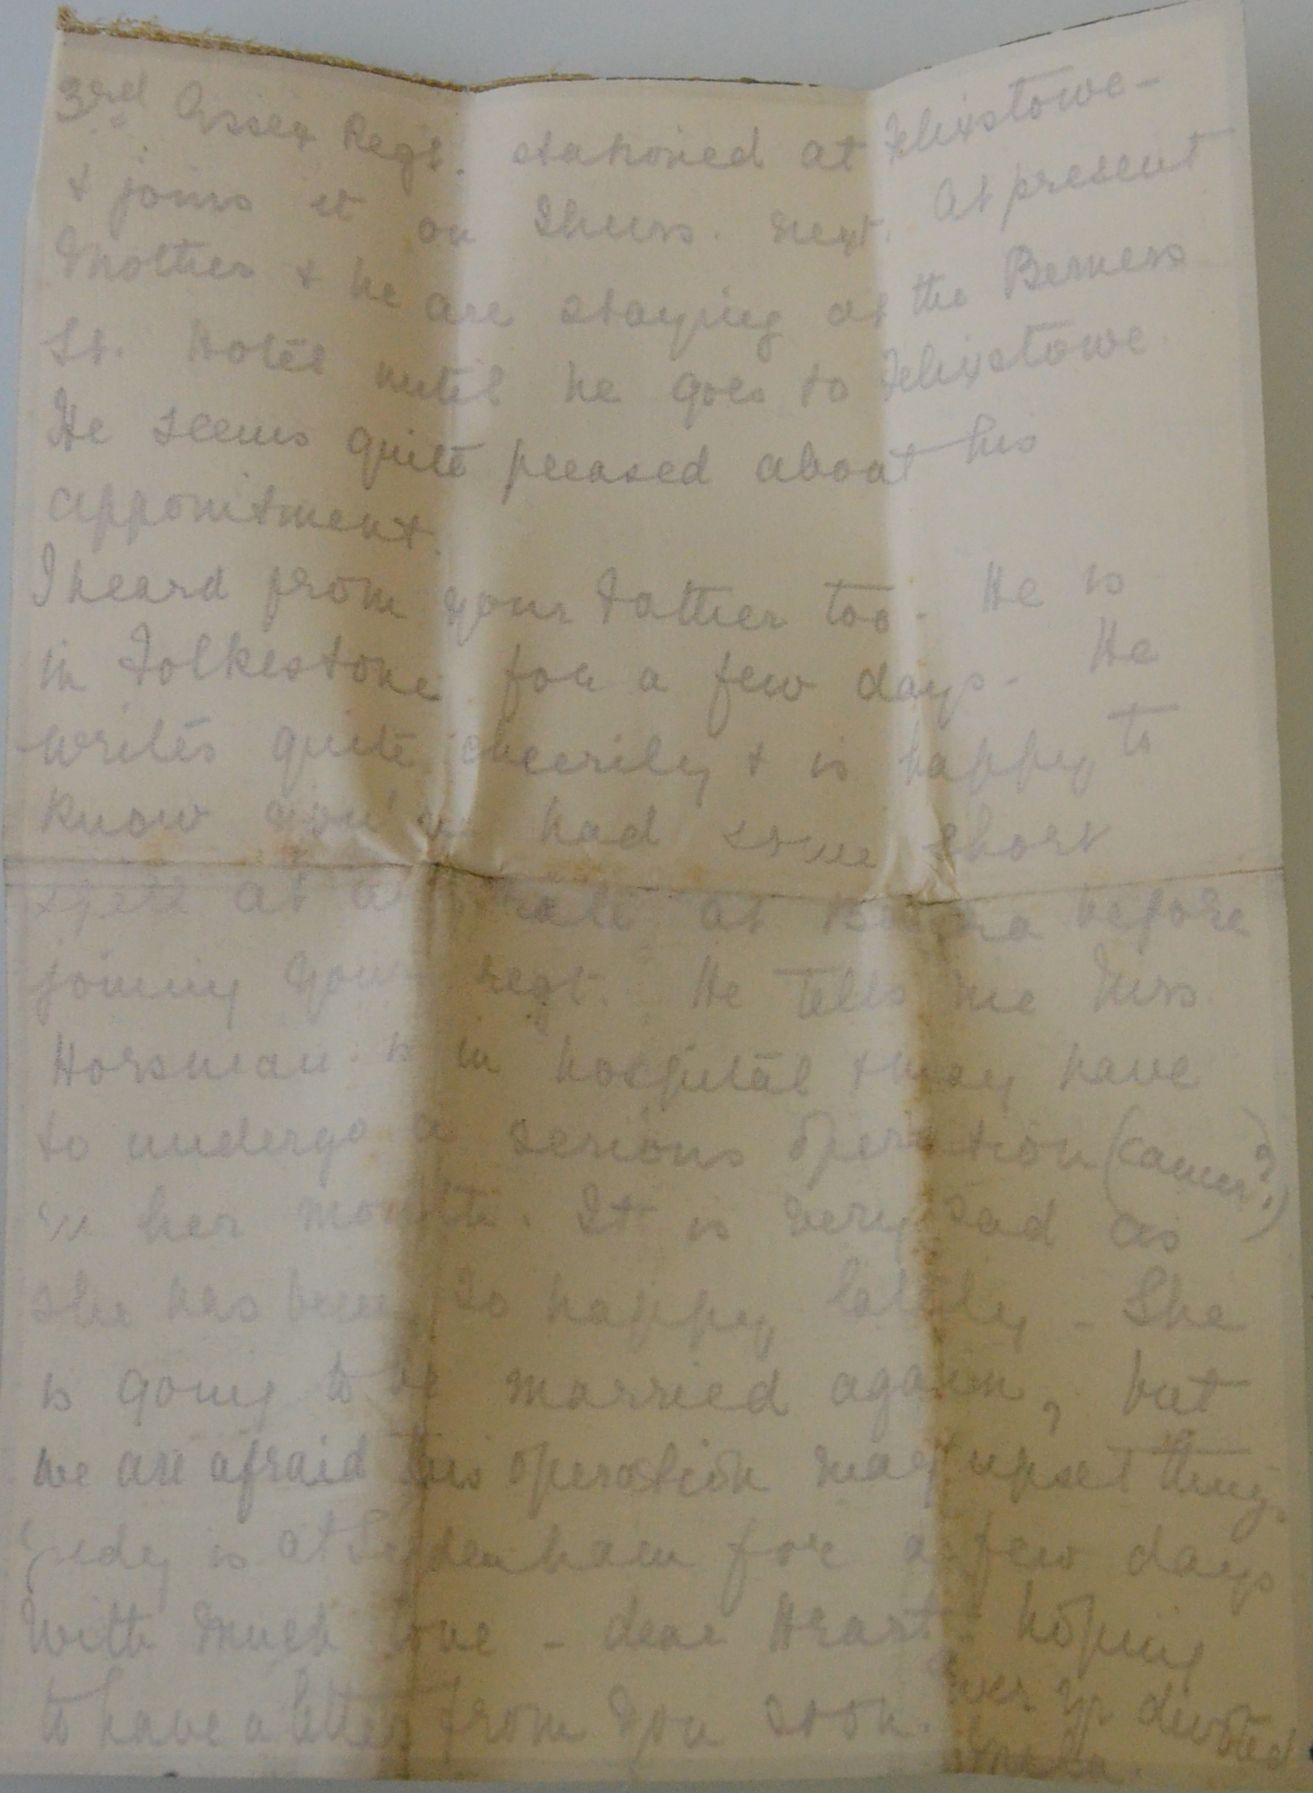 3rd Essex Regt. stationed at Felixstowe -
& joins it on Thurs. next. At present
Mother & he are staying at the Berners
St. Hotel until he goes to Felixstowe.
He seems quite pleased about his
appointment.
I heard from your Father too - He is
in Folkestone for a few days - He
writes quite cheerily & is happy to
know you've had some short
spell at any rate at before
joining your regt. He tells me Mrs.
Horsman is in hospital & may have
to undergo a serious operation (cancer?)
in her mouth. It is very sad as
she has been so happy lately - She
is going to be married again, but
we are afraid this operation may upset things.
is at Sydenham for a few days
With much love - dear Heart - hoping
to have a letter from you soon.
Ever yr devoted